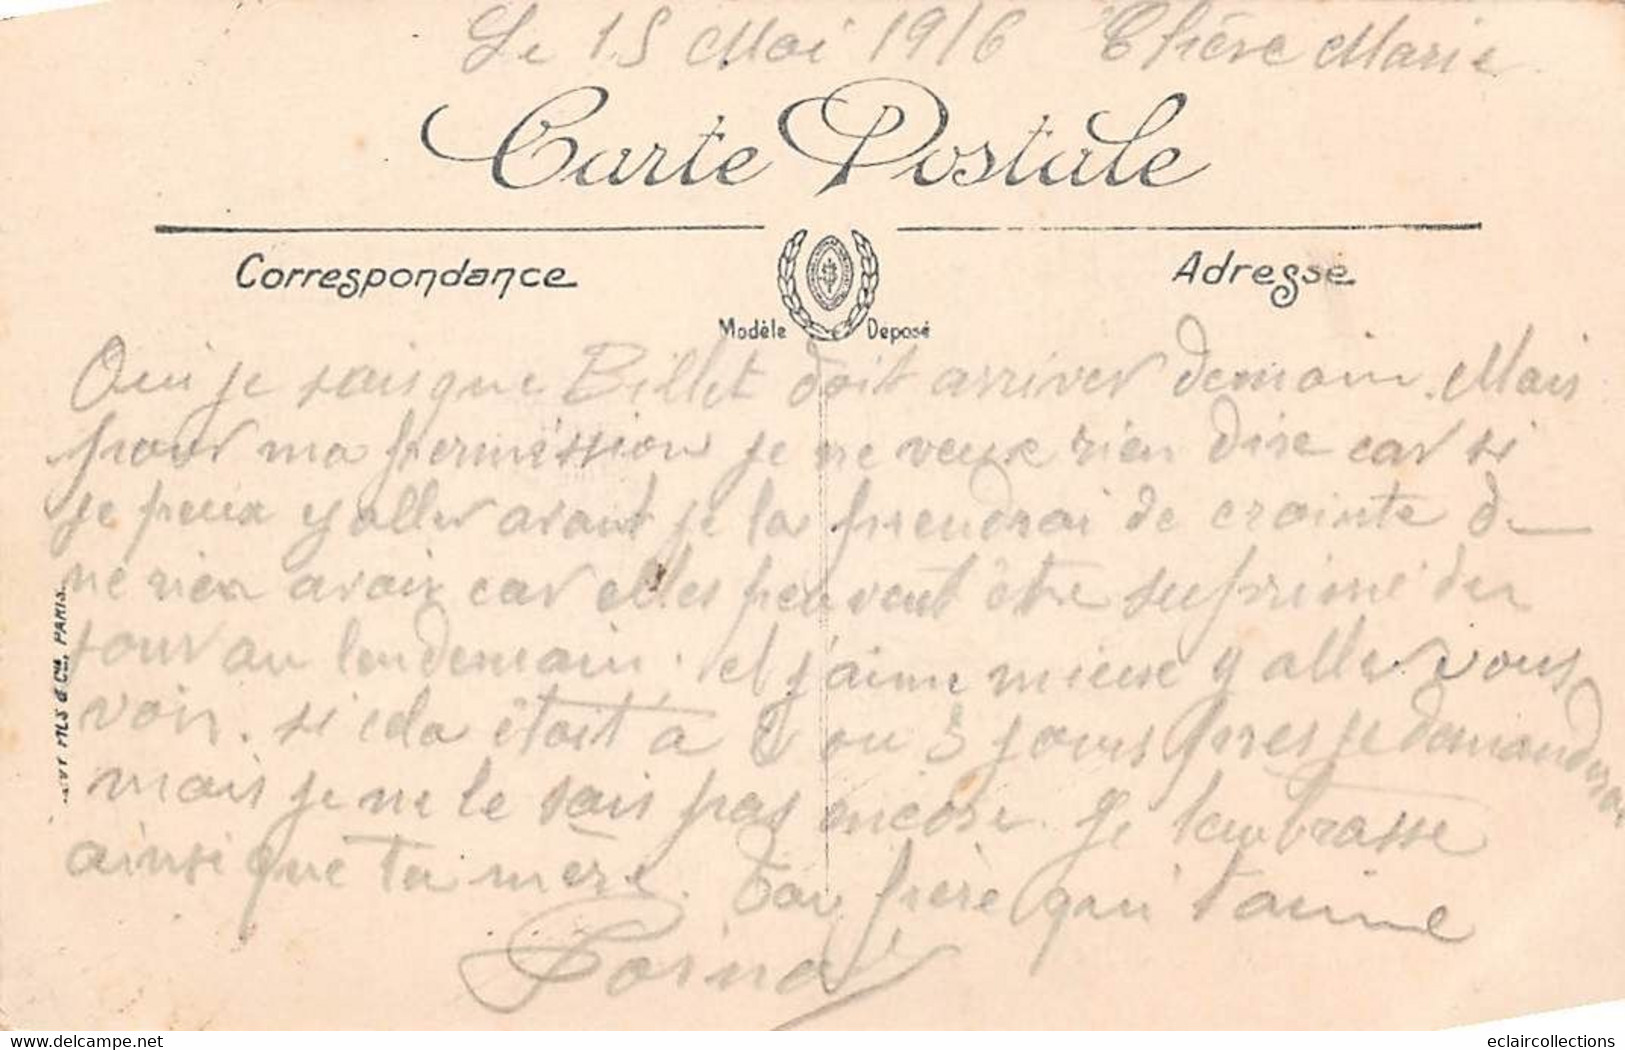 Le 15 Mai 1916 Chère Marie
Carte Postale
Correspondance
Adresse
Modèle Déposé
Oui je sais que Billet doit arriver demain. Mais
pour ma permission je ne veux rien dire car si
je peux y aller avant je la prendrai de crainte de
ne rien avoir car elles peuvent être suprimé du
jour au lendemain. et j'aime mieux y aller vous
voir. si cela était à 2 ou 3 jours pres je demanderai
mais je ne le sais pas encore. Je t'embrasse
ainsi que ta mère. Ton frère qui t'aime
LEVY FILS & Cie, PARIS.
Delcampe.net
eclaircollections